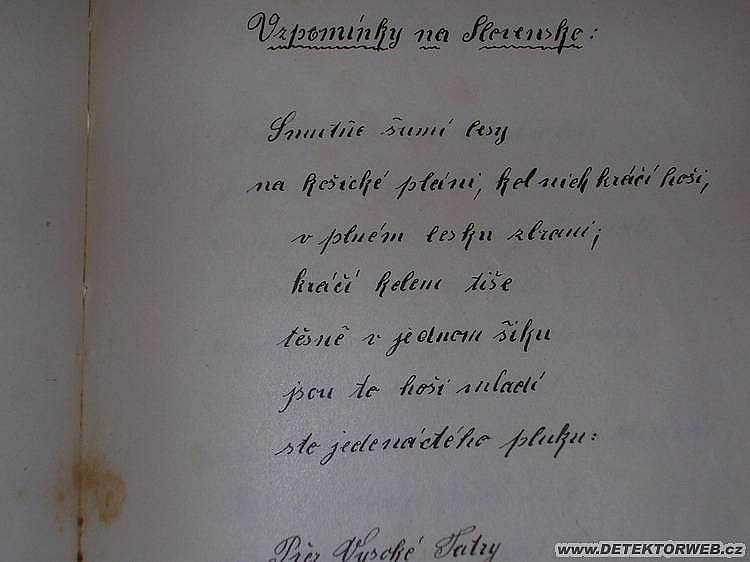 Vzpomínky na Slovensko:
Smutňe šumí lesy
na košické pláni, kol nich kráčí hoši,
v plném lesku zbraní;
kráčí kolem tiše
těsně v jednom šiku
jsou to hoši mladí
sto jedenáctého pluku:
Přes Vysoké Tatry
www.DETEKTORWEB.cz